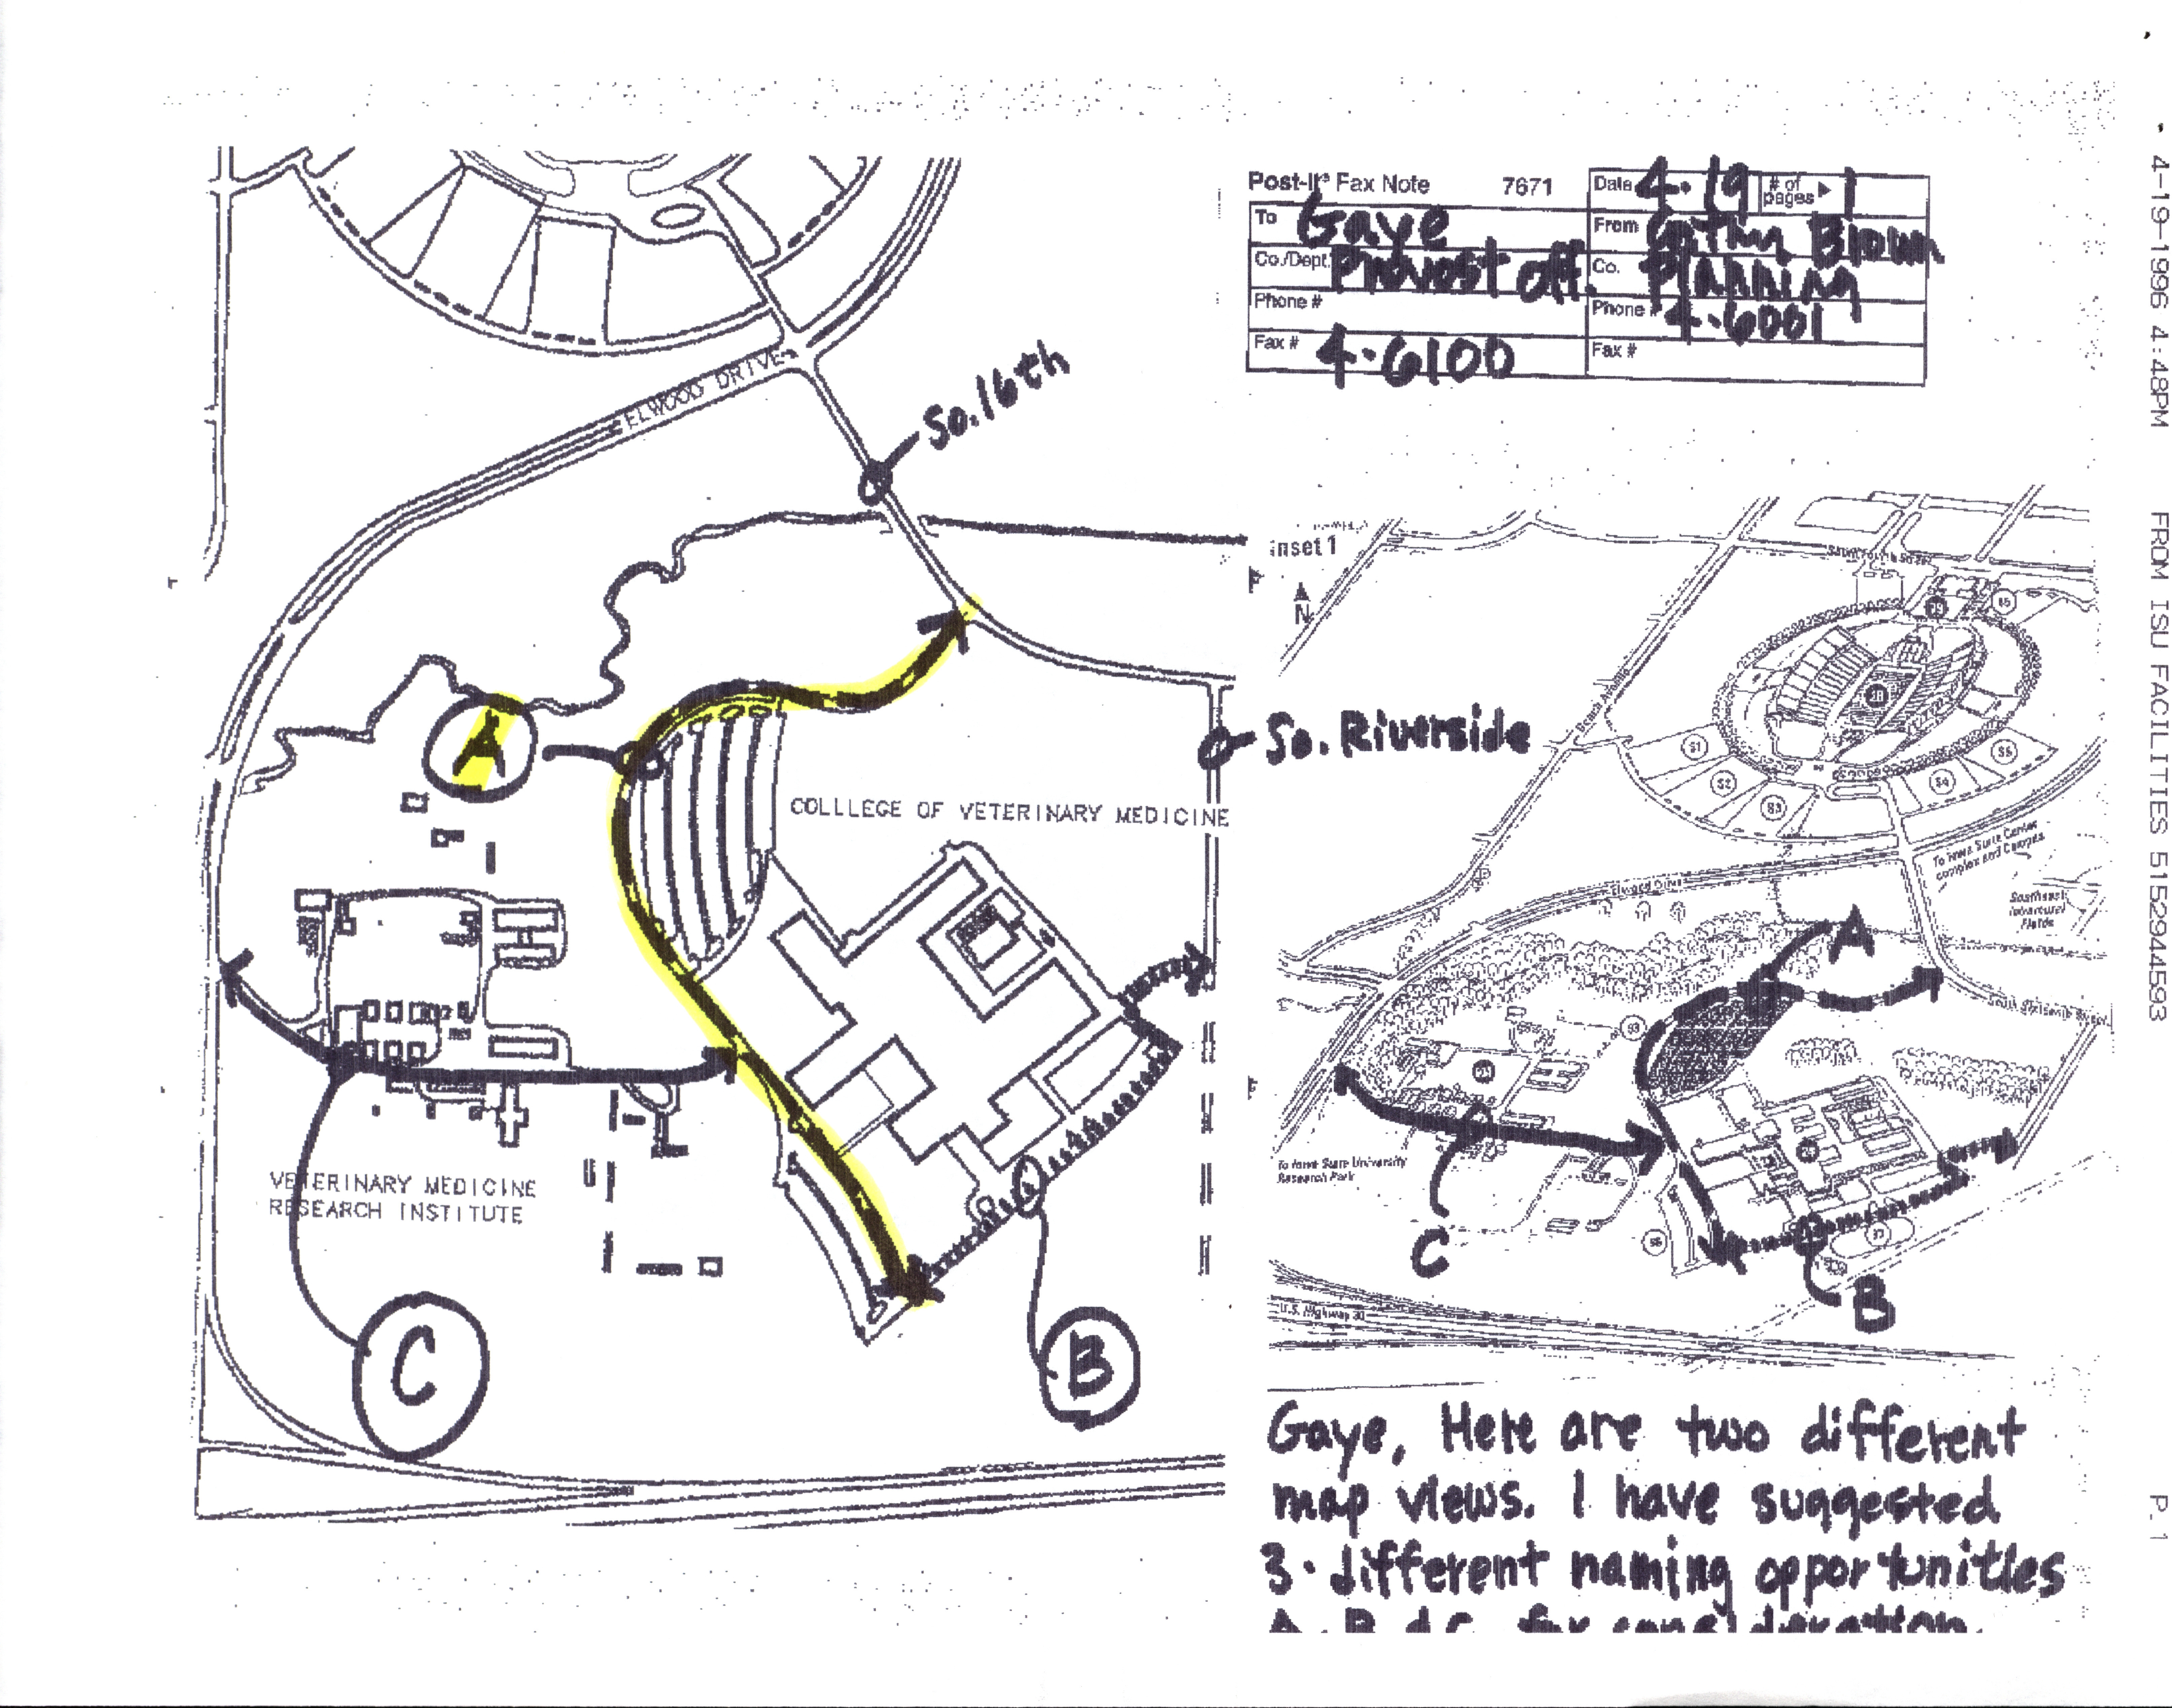 4-19-1996 4:48PM FROM ISU FACILITIES 5152944593 P.1
Post-It® Fax Note 7671
Date 4-19 # of pages ▶ 1
To Gaye
From Brown
Co./Dept. Provost off.
Co. Planning
Phone #
Phone # 4-6001
Fax # 4-6100
Fax #
ELWOOD DRIVE
So. 16th
So. Riverside
A
COLLLEGE OF VETERINARY MEDICINE
VETERINARY MEDICINE
RESEARCH INSTITUTE
C
B
inset 1
N
S1
S2
S3
S4
S5
Elwood Drive
To Iowa State Center
complex and Campus
Southeast
Intramural
Fields
A
To Iowa State University
Research Park
C
B
U.S. Highway 30
Gaye, Here are two different
map views. I have suggested
3 different naming opportunities
A, B & C for consideration.